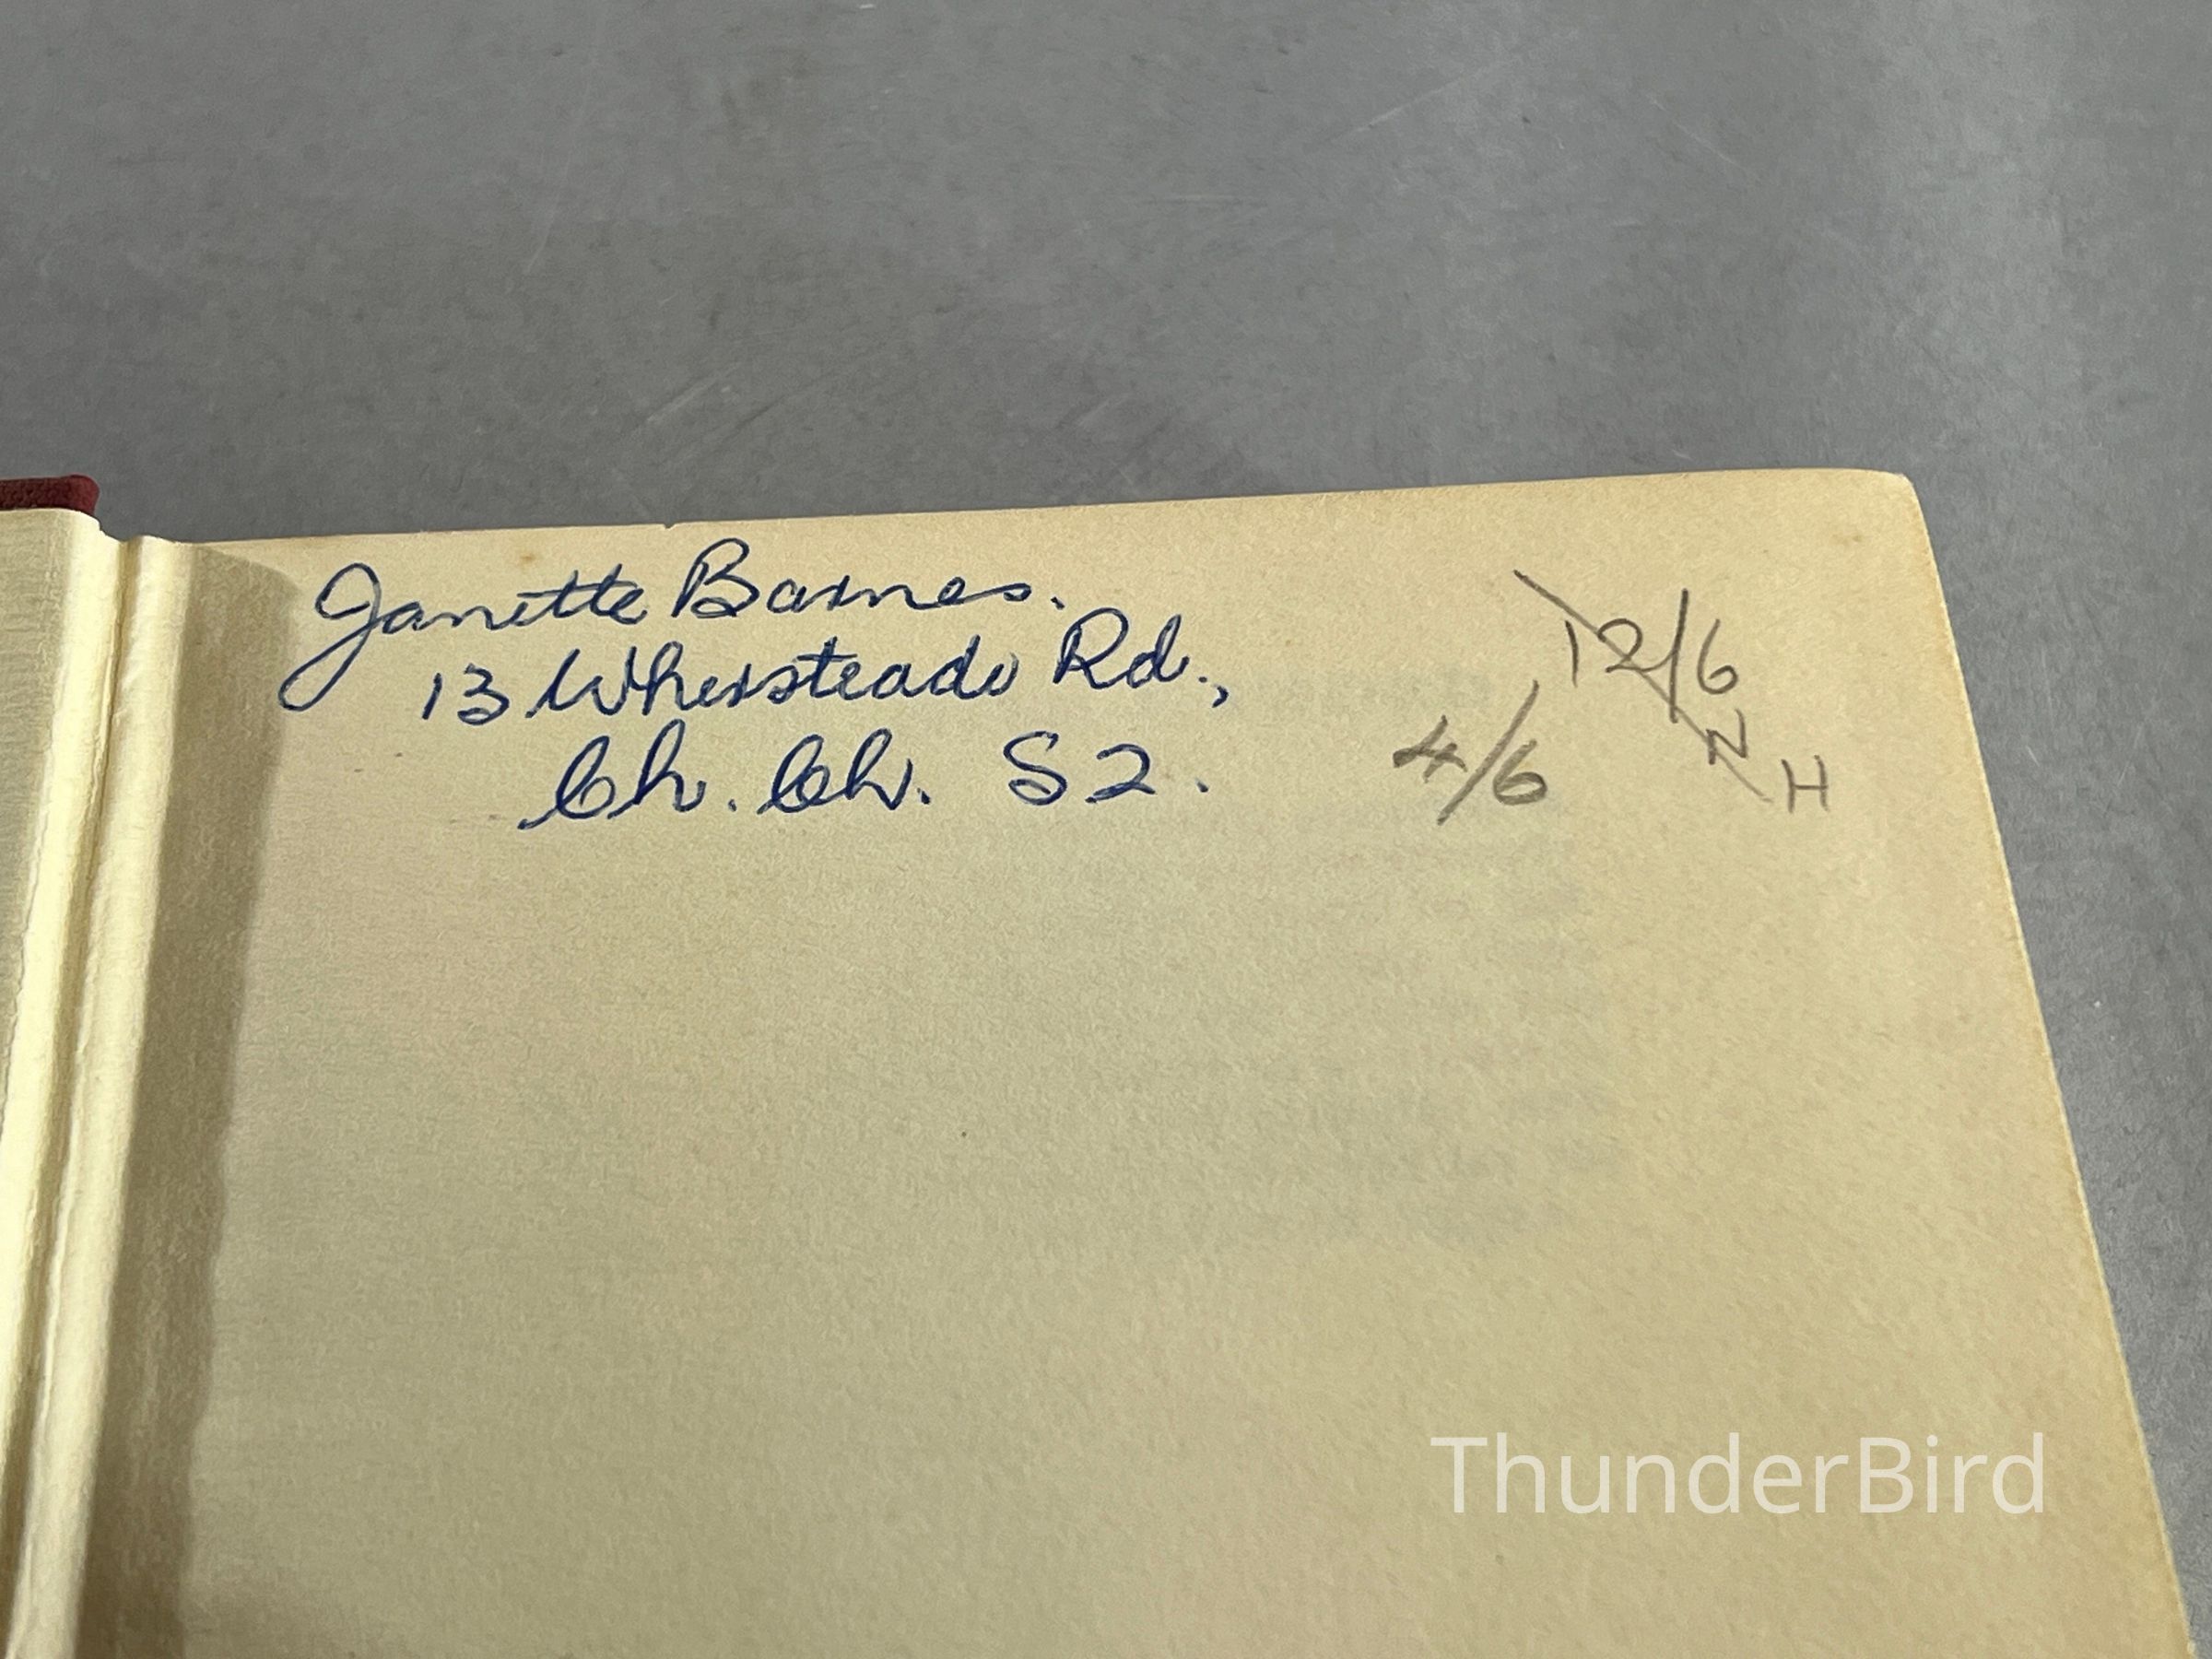 Janette Barnes.
13 Whersteads Rd.,
Ch. Ch. S2.
12/6
N H
4/6
ThunderBird